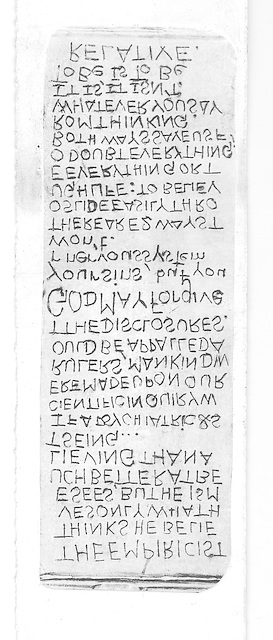 THE EMPIRICIST
THINKS HE BELIE
VES ONLY WHAT H
E SEES, BUT HE IS M
UCH BETTER AT BE
LIEVING THAN A
T SEING...
IF A PSYCHIATRIC & S
CIENTIFIC INQUIRY W
ERE MADE UPON OUR
RULERS, MANKIND W
OULD BE APPALLED A
T THE DISCLOSURES.
GOD MAY Forgive
your sins, but you
r nervous system
won't.
THERE ARE 2 WAYS T
O SLIDE EASILY THRO
UGH LIFE: TO BELIEV
E EVERYTHING OR T
O DOUBT EVERYTHING
BOTH WAYS SAVE US F
ROM THINKING.
WHATEVER YOU SAY
IT IS, IT ISN'T.
To Be Is To Be
RELATIVE.